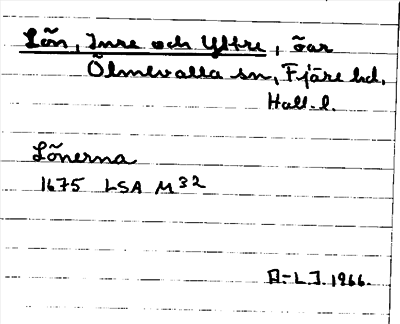 Lön, Inre och Yttre, öar
Ölmevalla sn, Fjäre hd.
Hall. l.
Lönerna
1675 LSA M32
A.-L.J. 1966.